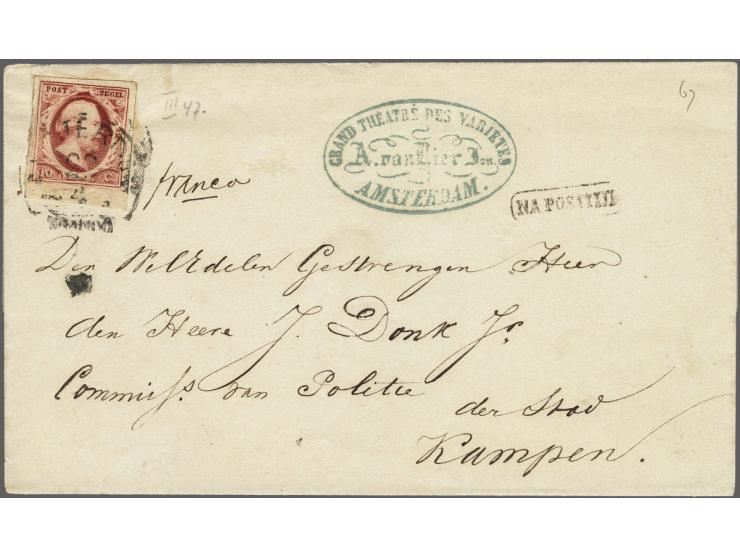 POST ZEGEL
10 C.
III 47.
67
GRAND THEATRE DES VARIETES
A. van Lier Jzn.
AMSTERDAM.
franco
NA POSTTIJD
Den WelEdelen Gestrengen Heer
den Heere J. Donk Jr.
Commisss. van Politie
der Stad
Kampen.